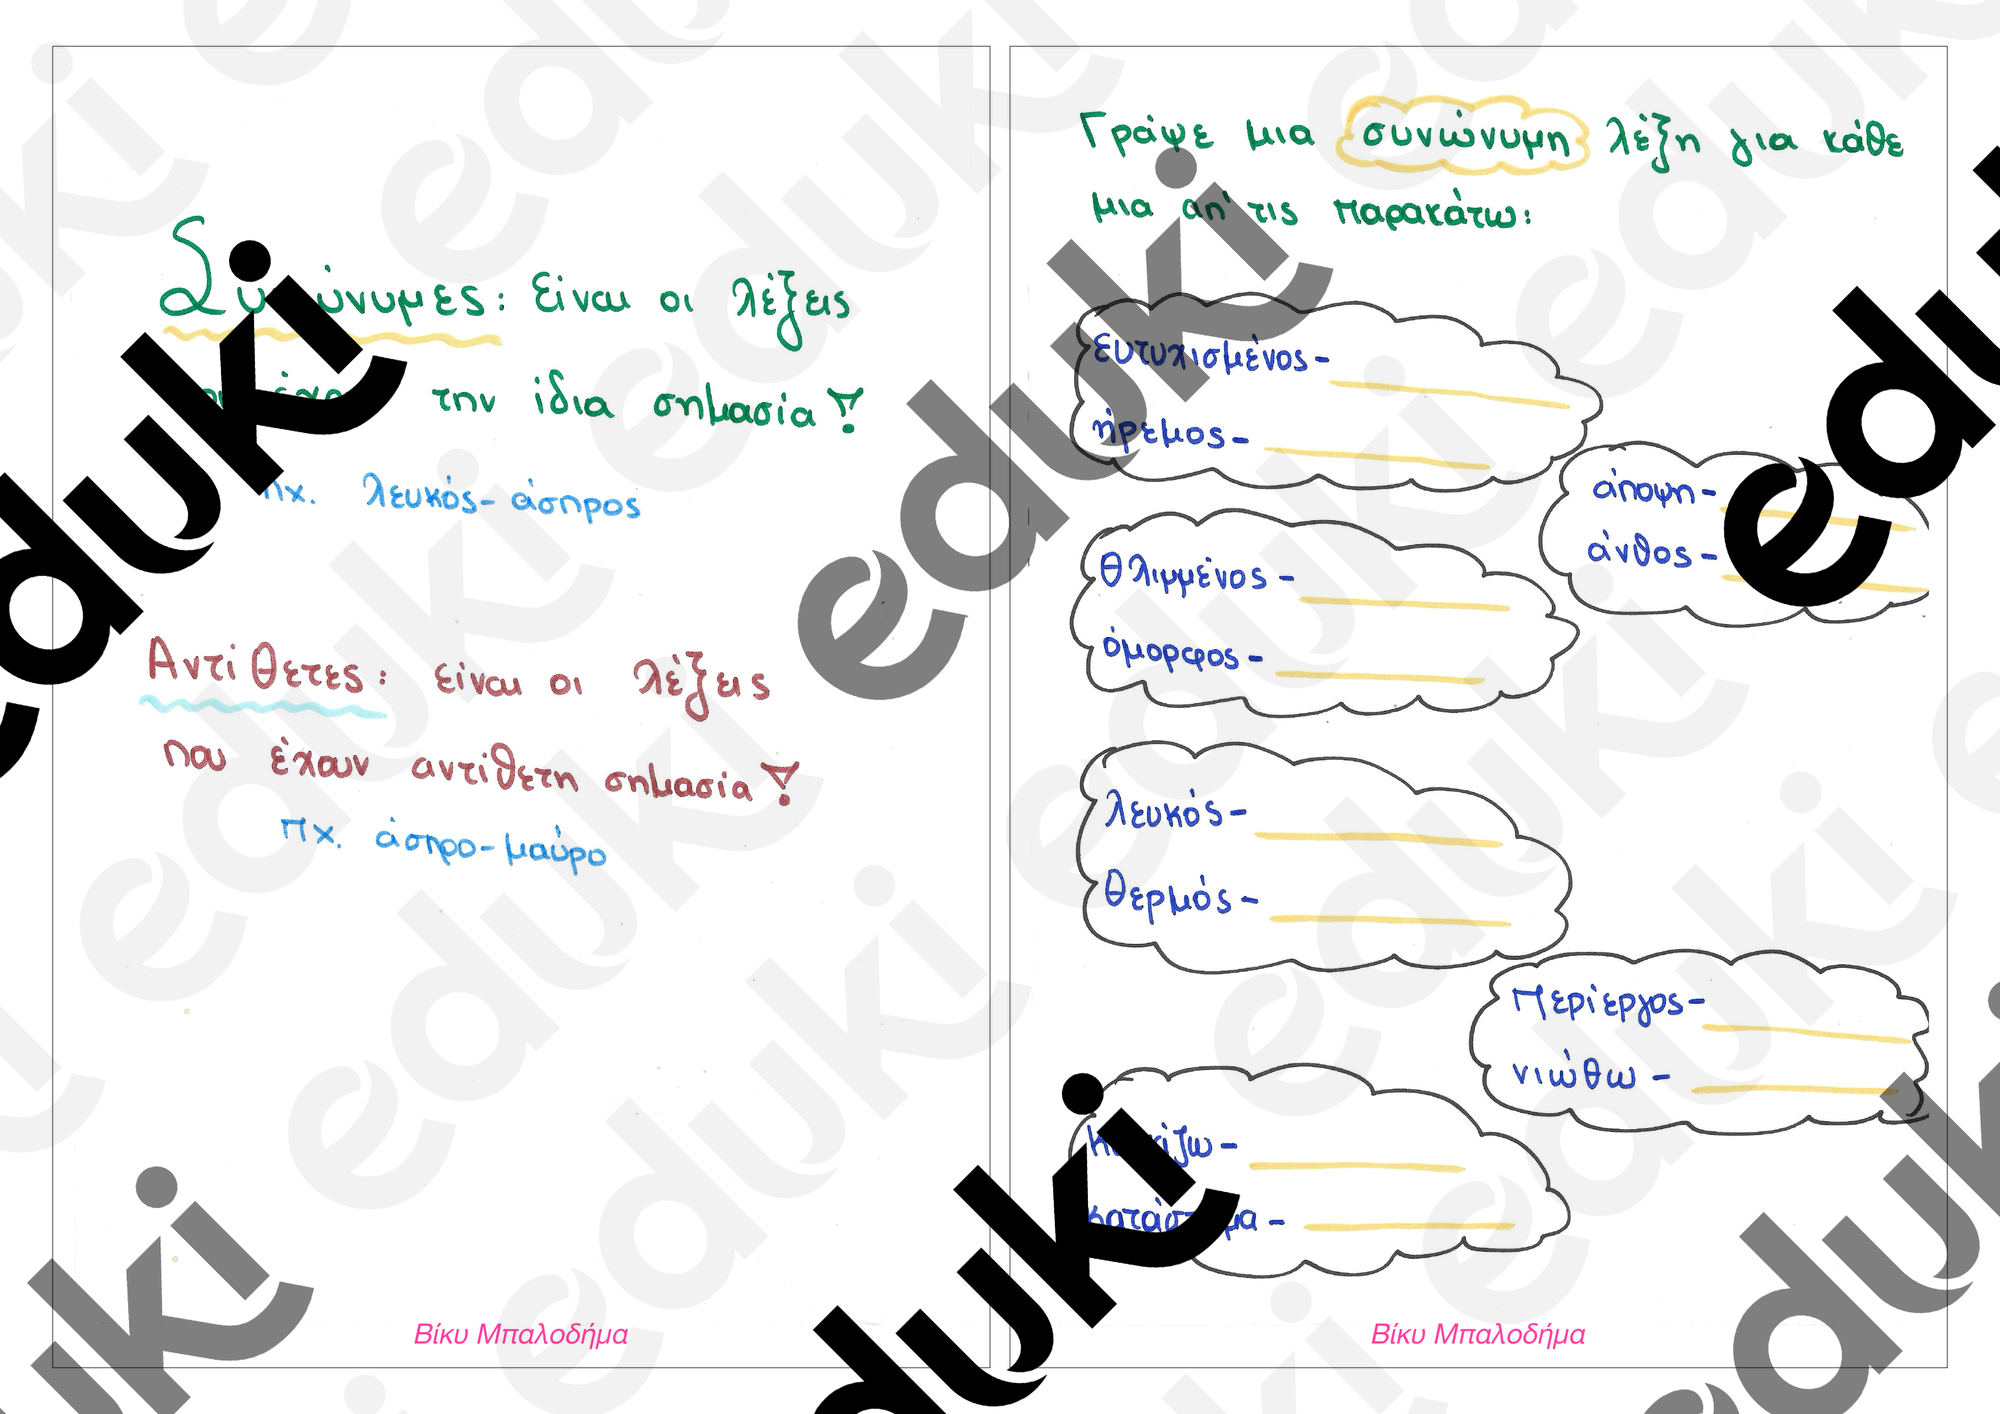 Συνώνυμες: είναι οι λέξεις
έχουν την ίδια σημασία!
πχ. λευκός- άσπρος
Αντίθετες: είναι οι λέξεις
που έχουν αντίθετη σημασία!
πχ. άσπρο-μαύρο
Βίκυ Μπαλοδήμα
Γράψε μια συνώνυμη λέξη για κάθε
μια απ' τις παρακάτω:
ευτυχισμένος-
ήρεμος-
άποψη-
άνθος-
θλιμμένος-
όμορφος-
λευκός-
θερμός-
περίεργος-
νιώθω -
κατάστημα -
Βίκυ Μπαλοδήμα
eduki
eduki
eduki
eduki
eduki
eduki